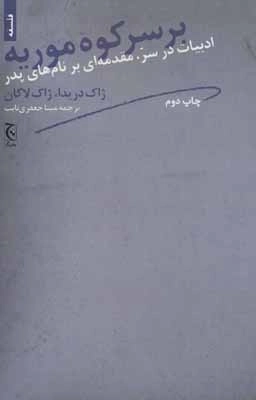 فلسفه
بر سر کوه موریه
ادبیات در سرّ. مقدمه‌ای بر نام‌های پدر
ژاک دریدا، ژاک لاکان
ترجمه مینا جعفری‌ثابت
چاپ دوم